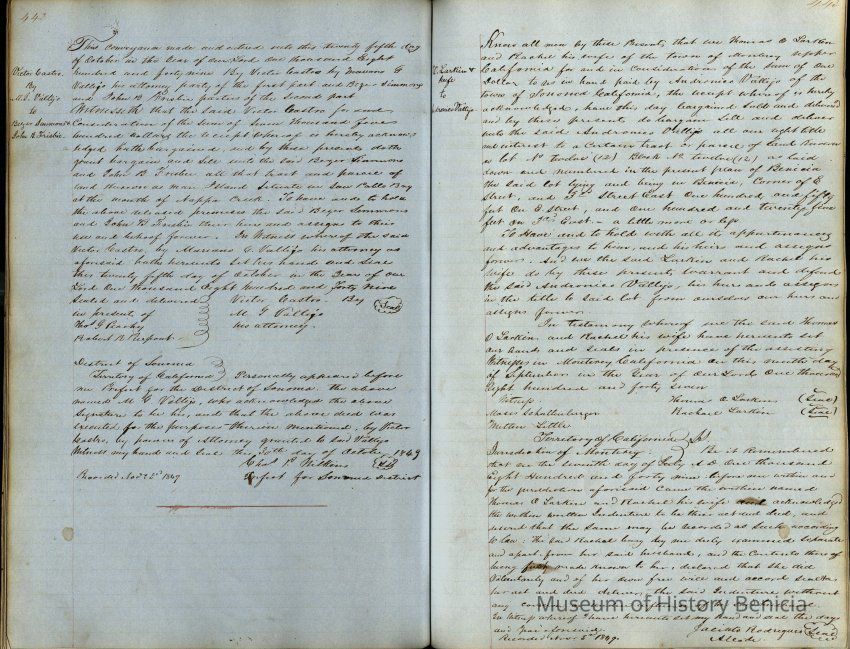 442
Victor Castro
By
M. G. Vallejo
to
Bezer Simmons &
John B. Frisbie
This conveyance made and entered into this twenty fifth day
of October in the Year of our Lord One thousand Eight
hundred and forty nine By Victor Castro by Mariano G
Vallejo his attorney party of the first part and Bezer Simmons
and John B Frisbie parties of the second part
Witnesseth that the said Victor Castro for and
Consideration of the sum of Seven Thousand five
hundred dollars the receipt whereof is hereby acknow
ledged hath bargained, and by these presents doth
grant bargain and Sell unto the said Bezer Simmons
and John B. Frisbie all that tract and parcel of
land known as Mare Island Situate in San Pablo Bay
at the mouth of Nappa Creek. To have and to hold
the above released premises the said Bezer Simmons
and John B Frisbie their heirs and assigns to their
use and behoof forever. In Witness whereof the said
Victor Castro, by Mariano G Vallejo his attorney as
aforesaid hath hereunto Set his hand and Seal
this twenty fifth day of October in the Year of our
Lord One thousand Eight hundred and forty nine
Sealed and delivered Victor Castro By (Seal)
in presence of M G Vallejo
Thos J Peachy his attorney.
Robert R. Pierpont
District of Sonoma
Territory of California Personally appeared before
me Prefect for the District of Sonoma the above
named M G Vallejo, who acknowledged the above
Signature to be his, and that the above deed was
executed for the purposes therein mentioned, by Victor
Castro, by power of Attorney granted to said Vallejo
Witness my hand and Seal this 30th day of October, 1849
Chas P. Wilkins
Prefect for Sonoma District
Recorded Nov 2d 1849
T. O. Larkin &
wife
to
Andronico Vallejo
Know all men by these Presents, that we Thomas O Larkin
and Rachel his wife of the town of Monterey Upper
California for and in consideration of the Sum of One
Dollar to us in hand paid by Andronico Vallejo of the
town of Sonoma California, the receipt whereof is hereby
acknowledged, have this day bargained Sold and delivered
and by these presents do bargain Sell and deliver
unto the said Andronico Vallejo all our right title
and interest to a certain tract or parcel of land known
as lot No twelve (12) Block No twelve (12) as laid
down and numbered in the present plan of Benicia
the said lot lying and being in Benicia, Corner of E
Street, and Street East One hundred and fifty
feet On E Street, and One hundred and twenty five
feet On East — a little more or less
To Have and to hold with all its appurtenances
and advantages to him, and his heirs and assigns
forever. And we the said Larkin and Rachel his
wife do by these presents warrant and defend
the said Andronico Vallejo, his heirs and assigns
in the title to said lot from ourselves our heirs and
assigns forever.
In testimony whereof we the said Thomas
O Larkin and Rachel his wife have hereunto set
our hands and Seals in presence of the undersigned
Witnesses in Monterey California on this month day
of September in the Year of Our Lord One thousand
Eight hundred and forty seven
Witness Thomas O Larkin (Seal)
Moses Schallenberger Rachel Larkin (Seal)
Milton Little
Territory of California
Jurisdiction of Monterey. Be it Remembered
that on the seventh day of July A D One thousand
Eight Hundred and forty nine before me within and
for the jurisdiction aforesaid came the within named
Thomas O Larkin and Rachel his wife acknowledged
the within written Indenture to be their act and deed, and
desired that the Same may be recorded as Such according
to law: The said Rachel being by me duly examined separate
and apart from her said husband, and the Contents thereof
being made known to her, declared that she did
Voluntarily and of her own free will and accord Seal as
her act and deed deliver the said Indenture without
any
In Witness whereof I have hereunto set my hand and seal the day
and year aforesaid.
Jacinto Rodriguez (Seal)
Alcalde
Recorded Nov. 2d 1849.
Museum of History Benicia